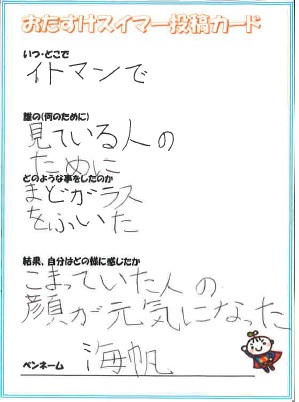 おたすけスイマー投稿カード
いつ・どこで
イトマンで
誰の(何のために)
見ている人の
ために
どのような事をしたのか
まどガラス
をふいた
結果、自分はどの様に感じたか
こまっていた人の
顔が元気になった
ペンネーム 海帆